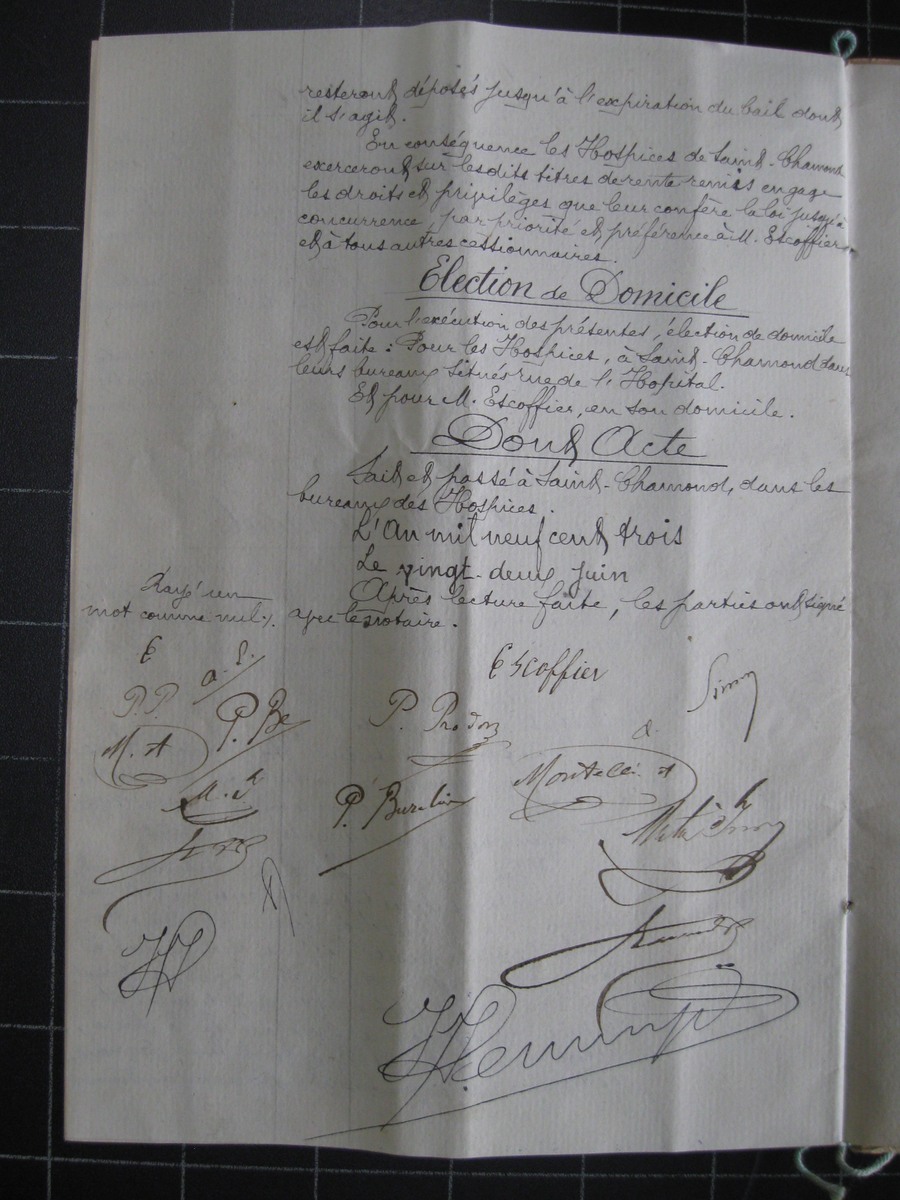 resteront déposés jusqu'à l'expiration du bail dont
il s'agit.
En conséquence les Hospices de Saint-Chamond
exerceront sur lesdits titres de rente remis en gage
les droits et privilèges que leur confère la loi jusqu'à
concurrence, par priorité et préférence à M. Escoffier
et à tous autres cessionnaires.
Election de Domicile
Pour l'exécution des présentes, élection de domicile
est faite : Pour les Hospices, à Saint-Chamond dans
leurs bureaux situés rue de l'Hopital.
Et pour M. Escoffier, en son domicile.
Dont Acte
Fait et passé à Saint-Chamond, dans les
bureaux des Hospices.
L'An mil neuf cent trois
Le vingt-deux juin
Après lecture faite, les parties ont signé
avec le notaire.
Rayé un
mot comme nul.
E
Escoffier
Simon
P.P.
P. Be
P. Prodon
M. A
P. Burelin